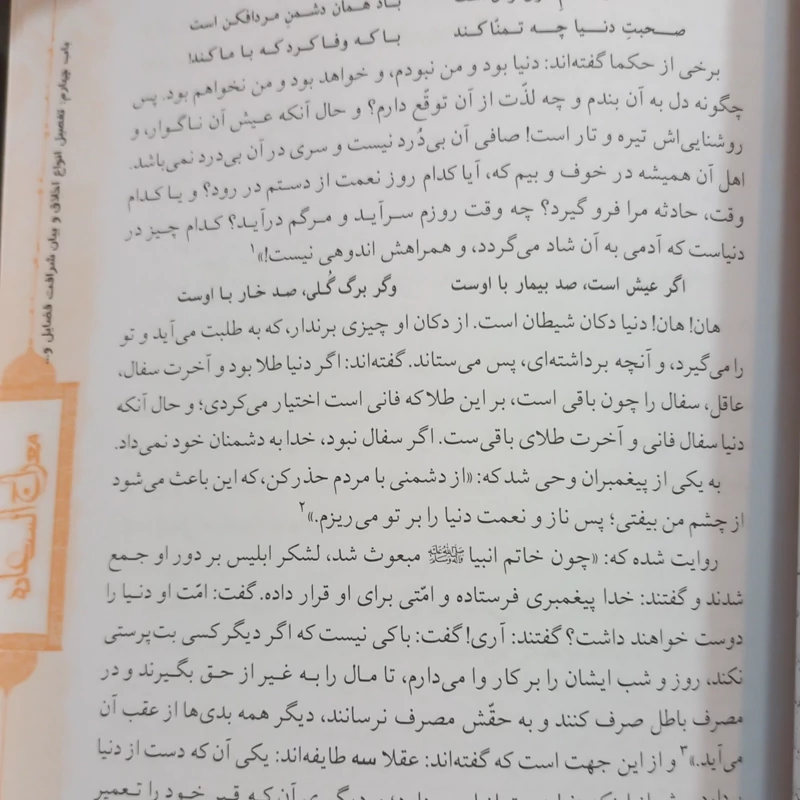 باد همان دشمنِ مردافکن است
صحبتِ دنیا چه تمنّا کند
با که وفا کرد که با ما کند!
برخی از حکما گفته‌اند: دنیا بود و من نبودم، و خواهد بود و من نخواهم بود. پس
چگونه دل به آن بندم و چه لذّت از آن توقّع دارم؟ و حال آنکه عیش آن ناگوار، و
روشنایی‌اش تیره و تار است! صافی آن بی‌دُرد نیست و سری در آن بی‌درد نمی‌باشد.
اهل آن همیشه در خوف و بیم که، آیا کدام روز نعمت از دستم در رود؟ و یا کدام
وقت، حادثه مرا فرو گیرد؟ چه وقت روزم سرآید و مرگم درآید؟ کدام چیز در
دنیاست که آدمی به آن شاد می‌گردد، و همراهش اندوهی نیست!»۱
اگر عیش است، صد بیمار با اوست
وگر برگ گُلی، صد خار با اوست
هان! هان! دنیا دکان شیطان است. از دکان او چیزی برندار، که به طلبت می‌آید و تو
را می‌گیرد، و آنچه برداشته‌ای، پس می‌ستاند. گفته‌اند: اگر دنیا طلا بود و آخرت سفال،
عاقل، سفال را چون باقی است، بر این طلا که فانی است اختیار می‌کردی؛ و حال آنکه
دنیا سفال فانی و آخرت طلای باقی‌ست. اگر سفال نبود، خدا به دشمنان خود نمی‌داد.
به یکی از پیغمبران وحی شد که: «از دشمنی با مردم حذر کن، که این باعث می‌شود
از چشم من بیفتی؛ پس ناز و نعمت دنیا را بر تو می‌ریزم.»۲
روایت شده که: «چون خاتم انبیا ﷺ مبعوث شد، لشکر ابلیس بر دور او جمع
شدند و گفتند: خدا پیغمبری فرستاده و امّتی برای او قرار داده. گفت: امّت او دنیا را
دوست خواهند داشت؟ گفتند: آری! گفت: باکی نیست که اگر دیگر کسی بت‌پرستی
نکند، روز و شب ایشان را بر کار وا می‌دارم، تا مال را به غیر از حق بگیرند و در
مصرف باطل صرف کنند و به حقّش مصرف نرسانند، دیگر همه بدی‌ها از عقب آن
می‌آید.»۳ و از این جهت است که گفته‌اند: عقلا سه طایفه‌اند: یکی آن که دست از دنیا
دیگری آن که قبر خود را تعمیر
باب چهارم: تفصیل انواع اخلاق و بیان شرافت فضایل و...
معراج السعاده